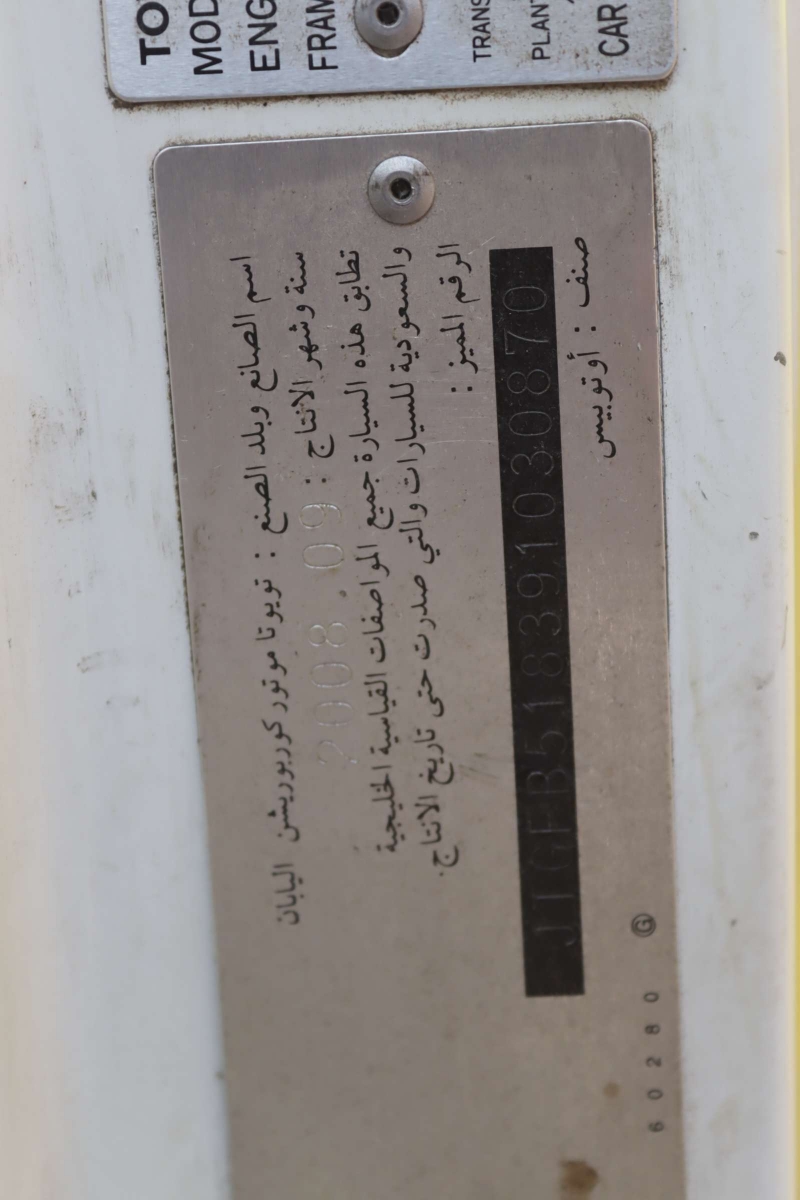 TO
MOD
ENG
FRAM
TRANS
PLANT
CAR
اسم الصانع وبلد الصنع : تويوتا موتور كوربوريشن اليابان
سنة وشهر الانتاج : 2008.09
تطابق هذه السيارة جميع المواصفات القياسية الخليجية
والسعودية للسيارات والتي صدرت حتى تاريخ الانتاج.
الرقم المميز :
JTGFB518391030870
صنف : أوتوبيس
60280 G